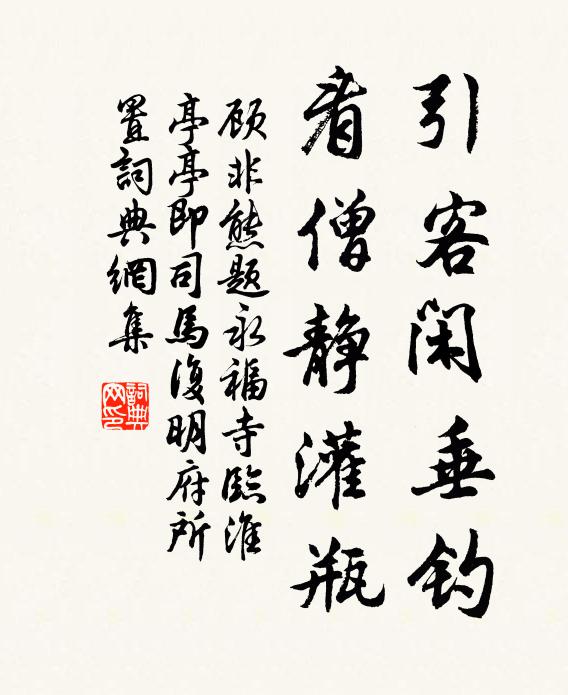 引客闲垂钓
看僧静灌瓶
顾非熊题永福寺臨淮
亭亭即司馬復明府所
置詞典網集
詞典网印